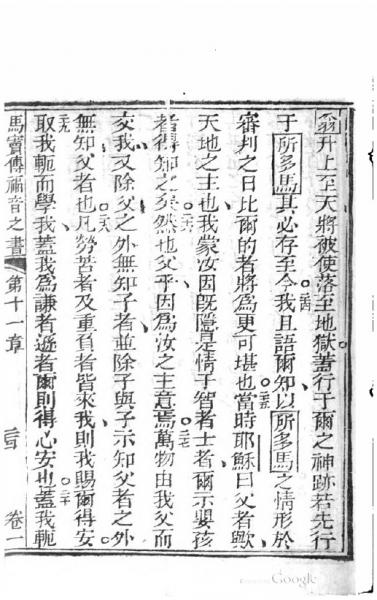 翁升上至天將被使落至地獄蓋行于爾之神跡若先行
于所多馬其必存至今我且語爾知以所多馬之情形於
審判之日比爾的者將爲更可堪也當時耶穌曰父者歟
天地之主也我蒙汝因旣隱是情于智者士者爾示嬰孩
者得知之矣然也父乎因爲汝之主意焉萬物由我父而
交我又除父之外無知子者並除子與子示知父者之外
無知父者也凡勞苦者及重負者皆來我則我賜爾得安
取我軛而學我蓋我爲謙者遜者爾則得心安也蓋我軛
馬竇傳福音之書 第十一章 卷一
Google